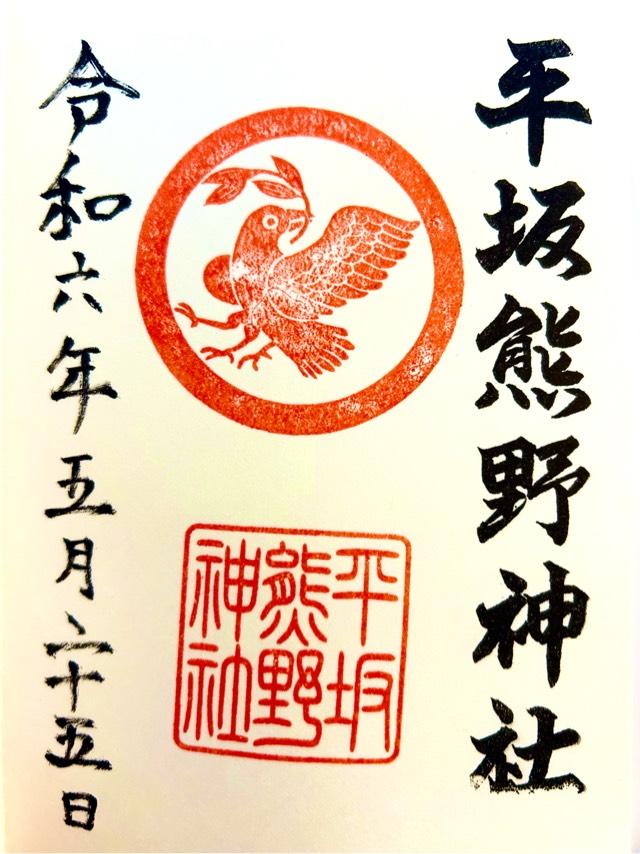 平坂熊野神社
平坂
熊野
神社
令和六年五月二十五日